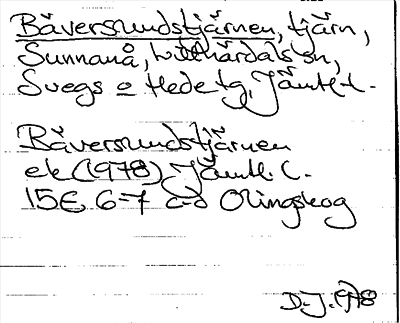 Bäversundstjärnen, tjärn,
Sunnanå, Lillhärdals sn,
Svegs o Hede tg, Jämtl l.
Bäversundstjärnen
ek (1978) Jämtl. C.
15E, 6-7 c-d Olingskog
D.J. 1978